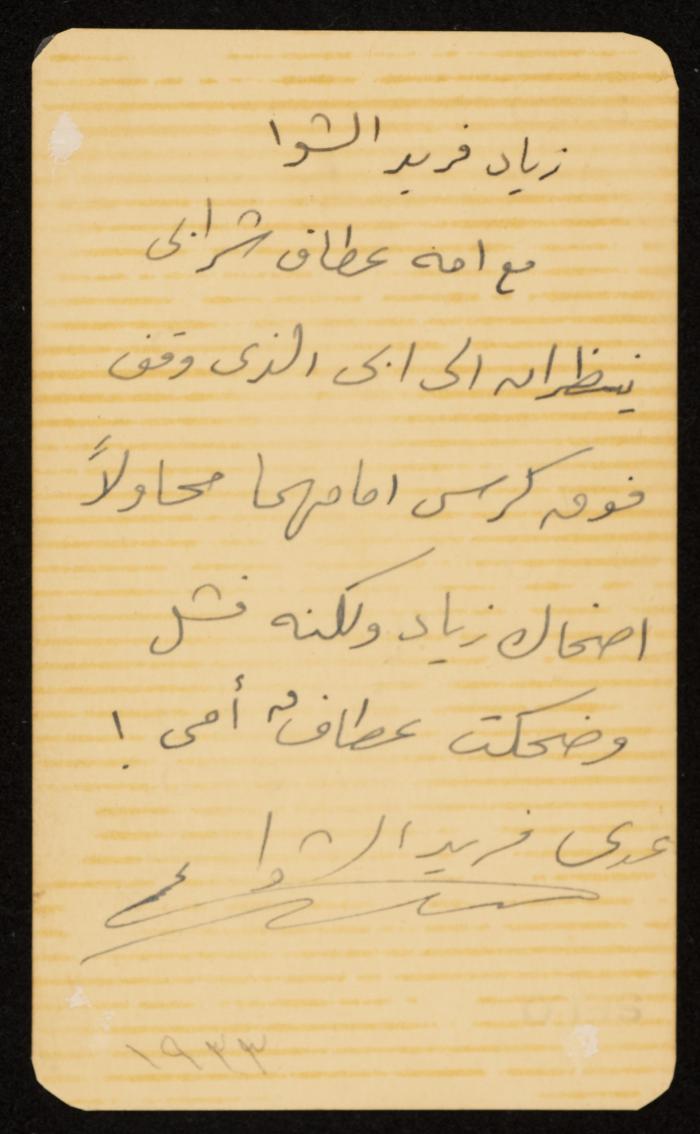 زياد فريد الشوا
مع امه عطاف شرابي
ينظران الى ابي الذي وقف
فوق كرسي امامهما محاولاً
اضحاك زياد ولكنه فشل
وضحكت عطاف أمي !
عدي فريد الشوا
١٩٣٣